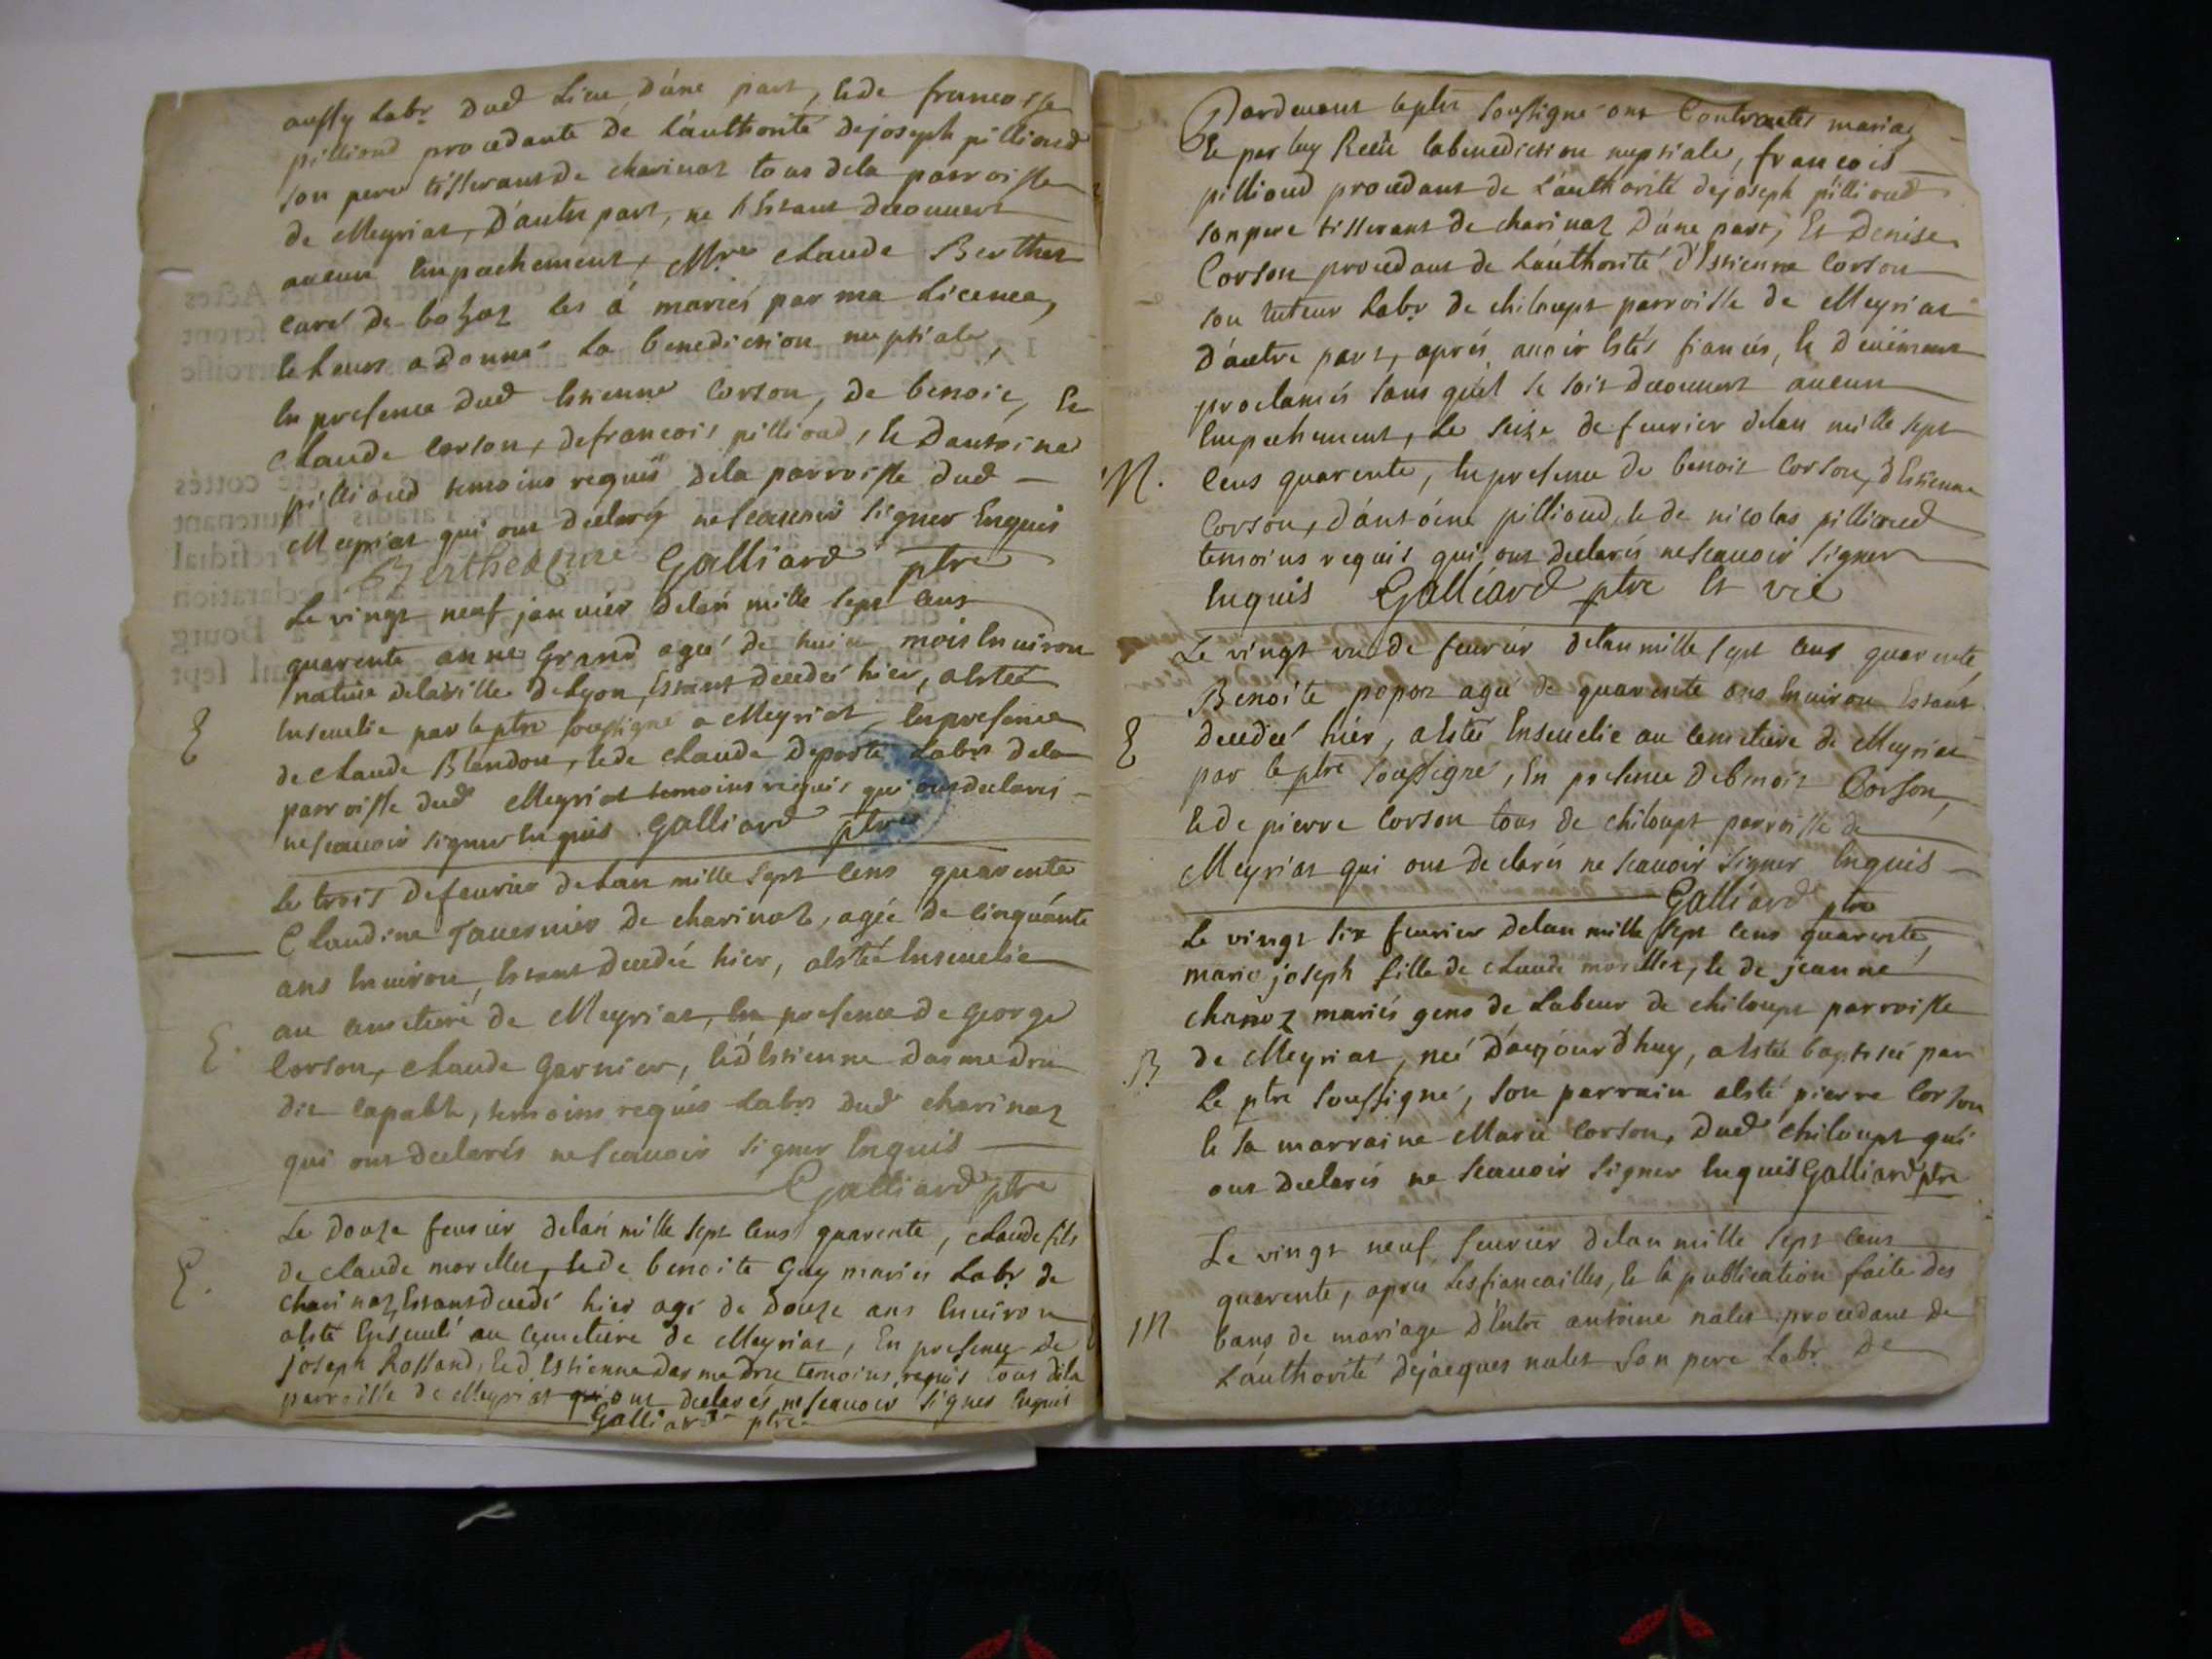 aussy labr dud Lieu d'une part, & de francoise
pillioud procedante de L'authorité de joseph pillioud
son pere tisserant de charinaz tous dela parroisse
de Meyriat, D'autre part, ne s'Estant decouvert
aucun Empechement, Mre claude Berthet
curé de bohaz les á mariés par ma Licence,
& Leurs a donné La benediction nuptiale,
En presence dud Estienne Corson, de benoit, &
claude Corson, de francois pillioud, & Dantoine
pillioud temoins requis dela parroisse dud
Meyriat qui ont declaré ne scauoir signer Enquis
Berthet Cure Galliard ptre
Le vingt neuf januier delan mille sept cens
quarente anne Grand ageé de huit mois Enuiron
natiue delaville de Lyon, Estant decedeé hier, aEsteé
Enseuelie par le ptre soussigné a Meyriat, En presence
de claude Blandon, & de claude Deporte Labrs dela
parroisse dud Meyriat temoins requis qui ont declarés
ne scauoir signer Enquis Galliard ptre
E
Le trois de feurier de Lan mille sept cens quarente
Claudine Tauernier de charinaz, agée de cinquánte
ans Enuiron, Estant decedeé hier, aEsteé Enseuelie
au cemetiere de Meyriat, En presence de George
Corson, claude Garnier, & d'Estienne Darmedru
dit capable, temoins requis Labrs dud charinaz
qui ont declarés ne scauoir signer Enquis
Galliard ptre
E.
Le douze feurier delan mille sept cens quarente, claude fils
de claude morellet, & de benoite Guy mariés Labr de
charinaz, Estant decedé hier agé de douze ans Enuiron
aEsté Enseueli au cemetiere de Meyriat, En presence de
joseph Rossand, & d'Estienne Darmedru temoins requis tous dela
parroisse de Meyriat qui ont declarés ne scauoir signer Enquis
Galliard ptre
E.
Pardeuant le ptre soussigné ont Contractés mariag
& par luy Receü la benediction nuptiale, francois
pillioud procedant de L'authorité de joseph pillioud
son pere tisserant de charinaz D'une part, Et Denise
Corson procedant de L'authorité d'Estienne Corson
son tuteur Labr de chiloup parroisse de Meyriat
D'autre part, aprés auoir Estés fiancés, & Deüement
proclamés sans qu'il se soit decouuert aucun
Empechement, Le seize de feurier delan mille sept
M. cens quarente, En presence de benoit Corson, d'Estienne
Corson, d'antoine pillioud, & de nicolas pillioud
temoins requis qui ont declarés ne scauoir signer
Enquis Galliard ptre Et vic
Le vingt un de feurier delan mille sept cens quarente,
Benoite popon ageé de quarente ans Enuiron Estant
E decedeé hier, aEsteé Enseuelie au cemetiere de Meyriat
par le ptre soussigné, En presence de benoit Corson,
& de pierre Corson tous de chiloup parroisse de
Meyriat qui ont declarés ne scauoir signer Enquis
Galliard ptre
Le vingt six feurier delan mille sept cens quarente,
marie joseph fille de claude morellet, & de jeanne
chanoz mariés gens de Labeur de chiloup parroisse
B de Meyriat, neé d'aujourd'huy, aEsteé baptiseé par
Le ptre soussigné, son parrain aEsté pierre Corson
& sa marraine Marie Corson, dud chiloup qui
ont declarés ne scauoir signer Enquis Galliard ptre
Le vingt neuf feurier delan mille sept cens
quarente, apres Les fiancailles, & la publication faite des
M bans de mariage d'Entre antoine nalet procedant de
L'authorité de jacques nalet son pere Labr de